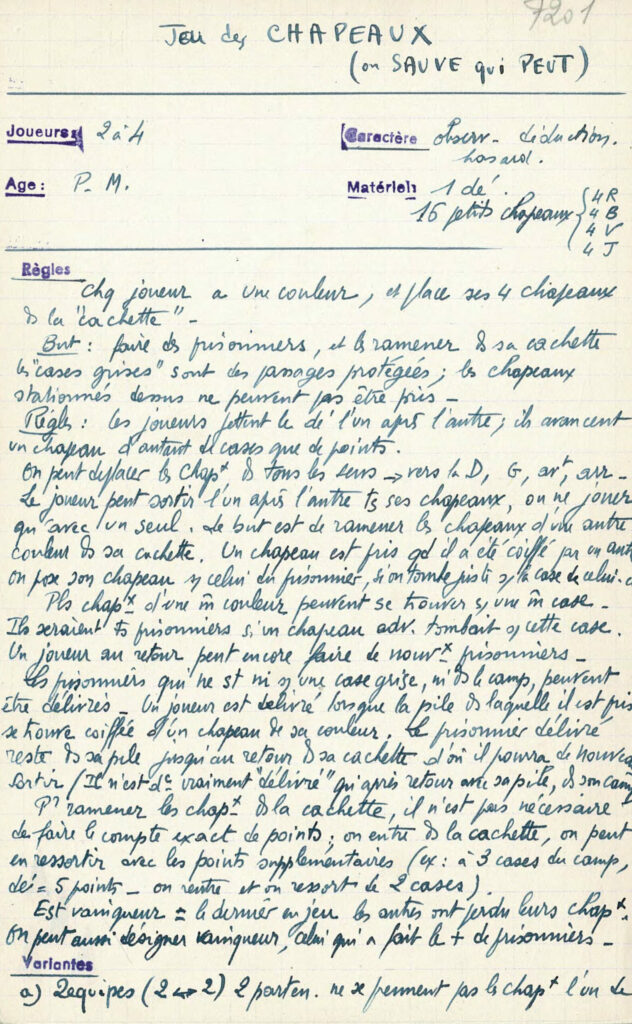 7201
Jeu des CHAPEAUX
(ou SAUVE qui PEUT)
Joueurs: 2 à 4
Caractère observ - déduction.
hasard.
Age: P. M.
Matériel: 1 dé.
16 petits chapeaux { 4 R
4 B
4 V
4 J
Règles
Chq joueur a une couleur, et place ses 4 chapeaux
ds la "cachette" -
But : faire des prisonniers, et les ramener ds sa cachette
les "cases grises" sont des passages protégées ; les chapeaux
stationnés dessus ne peuvent pas être pris -
Règles : les joueurs jettent le dé l'un après l'autre ; ils avancent
un chapeau d'autant de cases que de points.
On peut déplacer les chapx ds tous les sens → vers la D, G, avt, arr -
Le joueur peut sortir l'un après l'autre ts ses chapeaux, ou ne jouer
qu'avec un seul. Le but est de ramener les chapeaux d'une autre
couleur ds sa cachette. Un chapeau est pris qd il a été coiffé par un aut
on pose son chapeau s/ celui du prisonnier, si on tombe juste s/ la case de celui-c
Pls chapx d'une m̂ couleur peuvent se trouver s/ une m̂ case -
Ils seraient ts prisonniers si un chapeau adv. tombait s/ cette case.
Un joueur au retour peut encore faire de nouvx prisonniers -
Les prisonniers qui ne st ni s/ une case grise, ni ds le camp, peuvent
être délivrés - Un joueur est délivré lorsque la pile ds laquelle il est pris
se trouve coiffée d'un chapeau de sa couleur. Le prisonnier délivré
reste ds sa pile jusqu'au retour ds sa cachette d'où il pourra de nouvea
sortir (Il n'est dc vraiment "délivré" qu'après retour avec sa pile, ds son camp
Pr ramener les chapx ds la cachette, il n'est pas nécessaire
de faire le compte exact de points ; on entre ds la cachette, on peut
en ressortir avec les points supplémentaires (ex : à 3 cases du camp,
dé = 5 points - on rentre et on ressort de 2 cases).
Est vainqueur = le dernier en jeu les autres ont perdu leurs chapx.
On peut aussi désigner vainqueur, celui qui a fait le + de prisonniers -
Variantes
a) 2 équipes (2 ↔ 2) 2 parten. ne se prennent pas les chapx l'un de